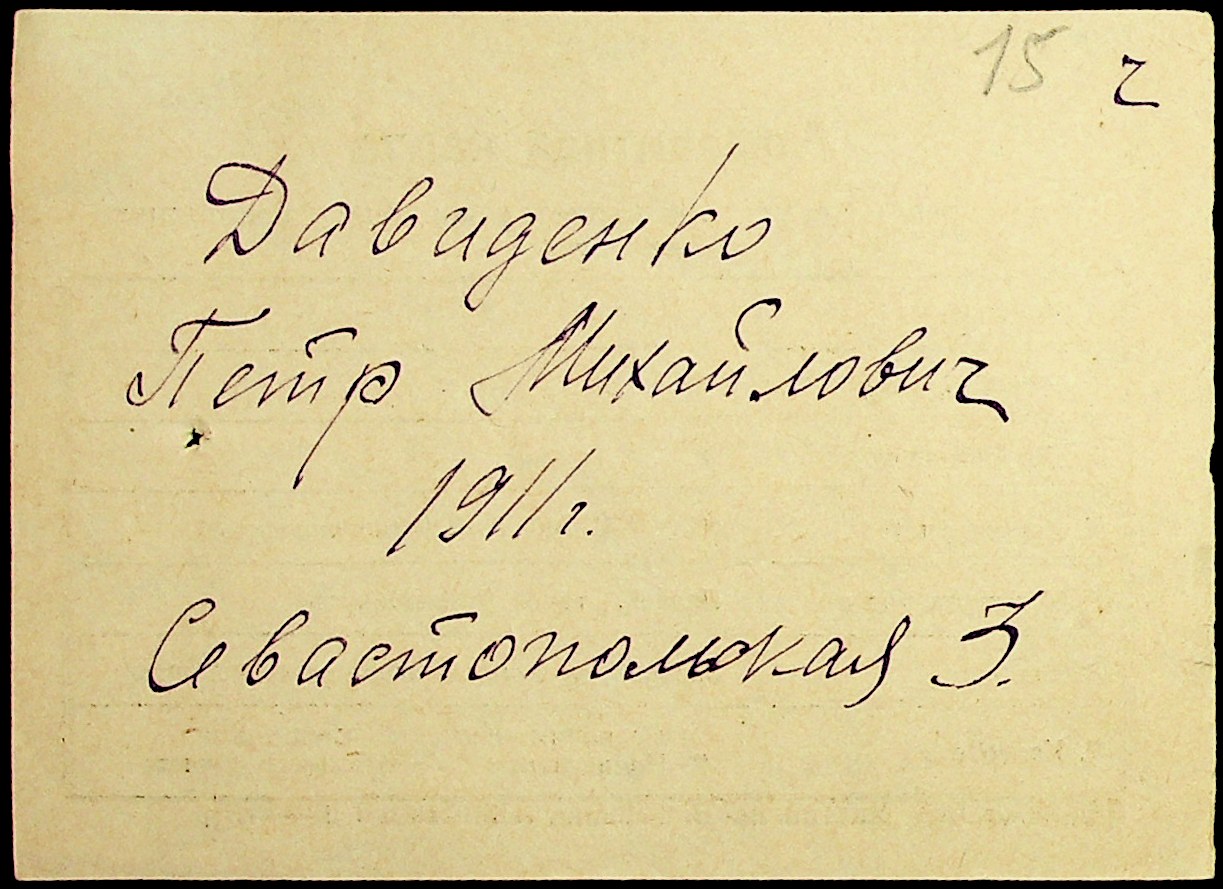 15 ч
Давиденко
Петр Михайлович
1911г.
Севастопольская 3.